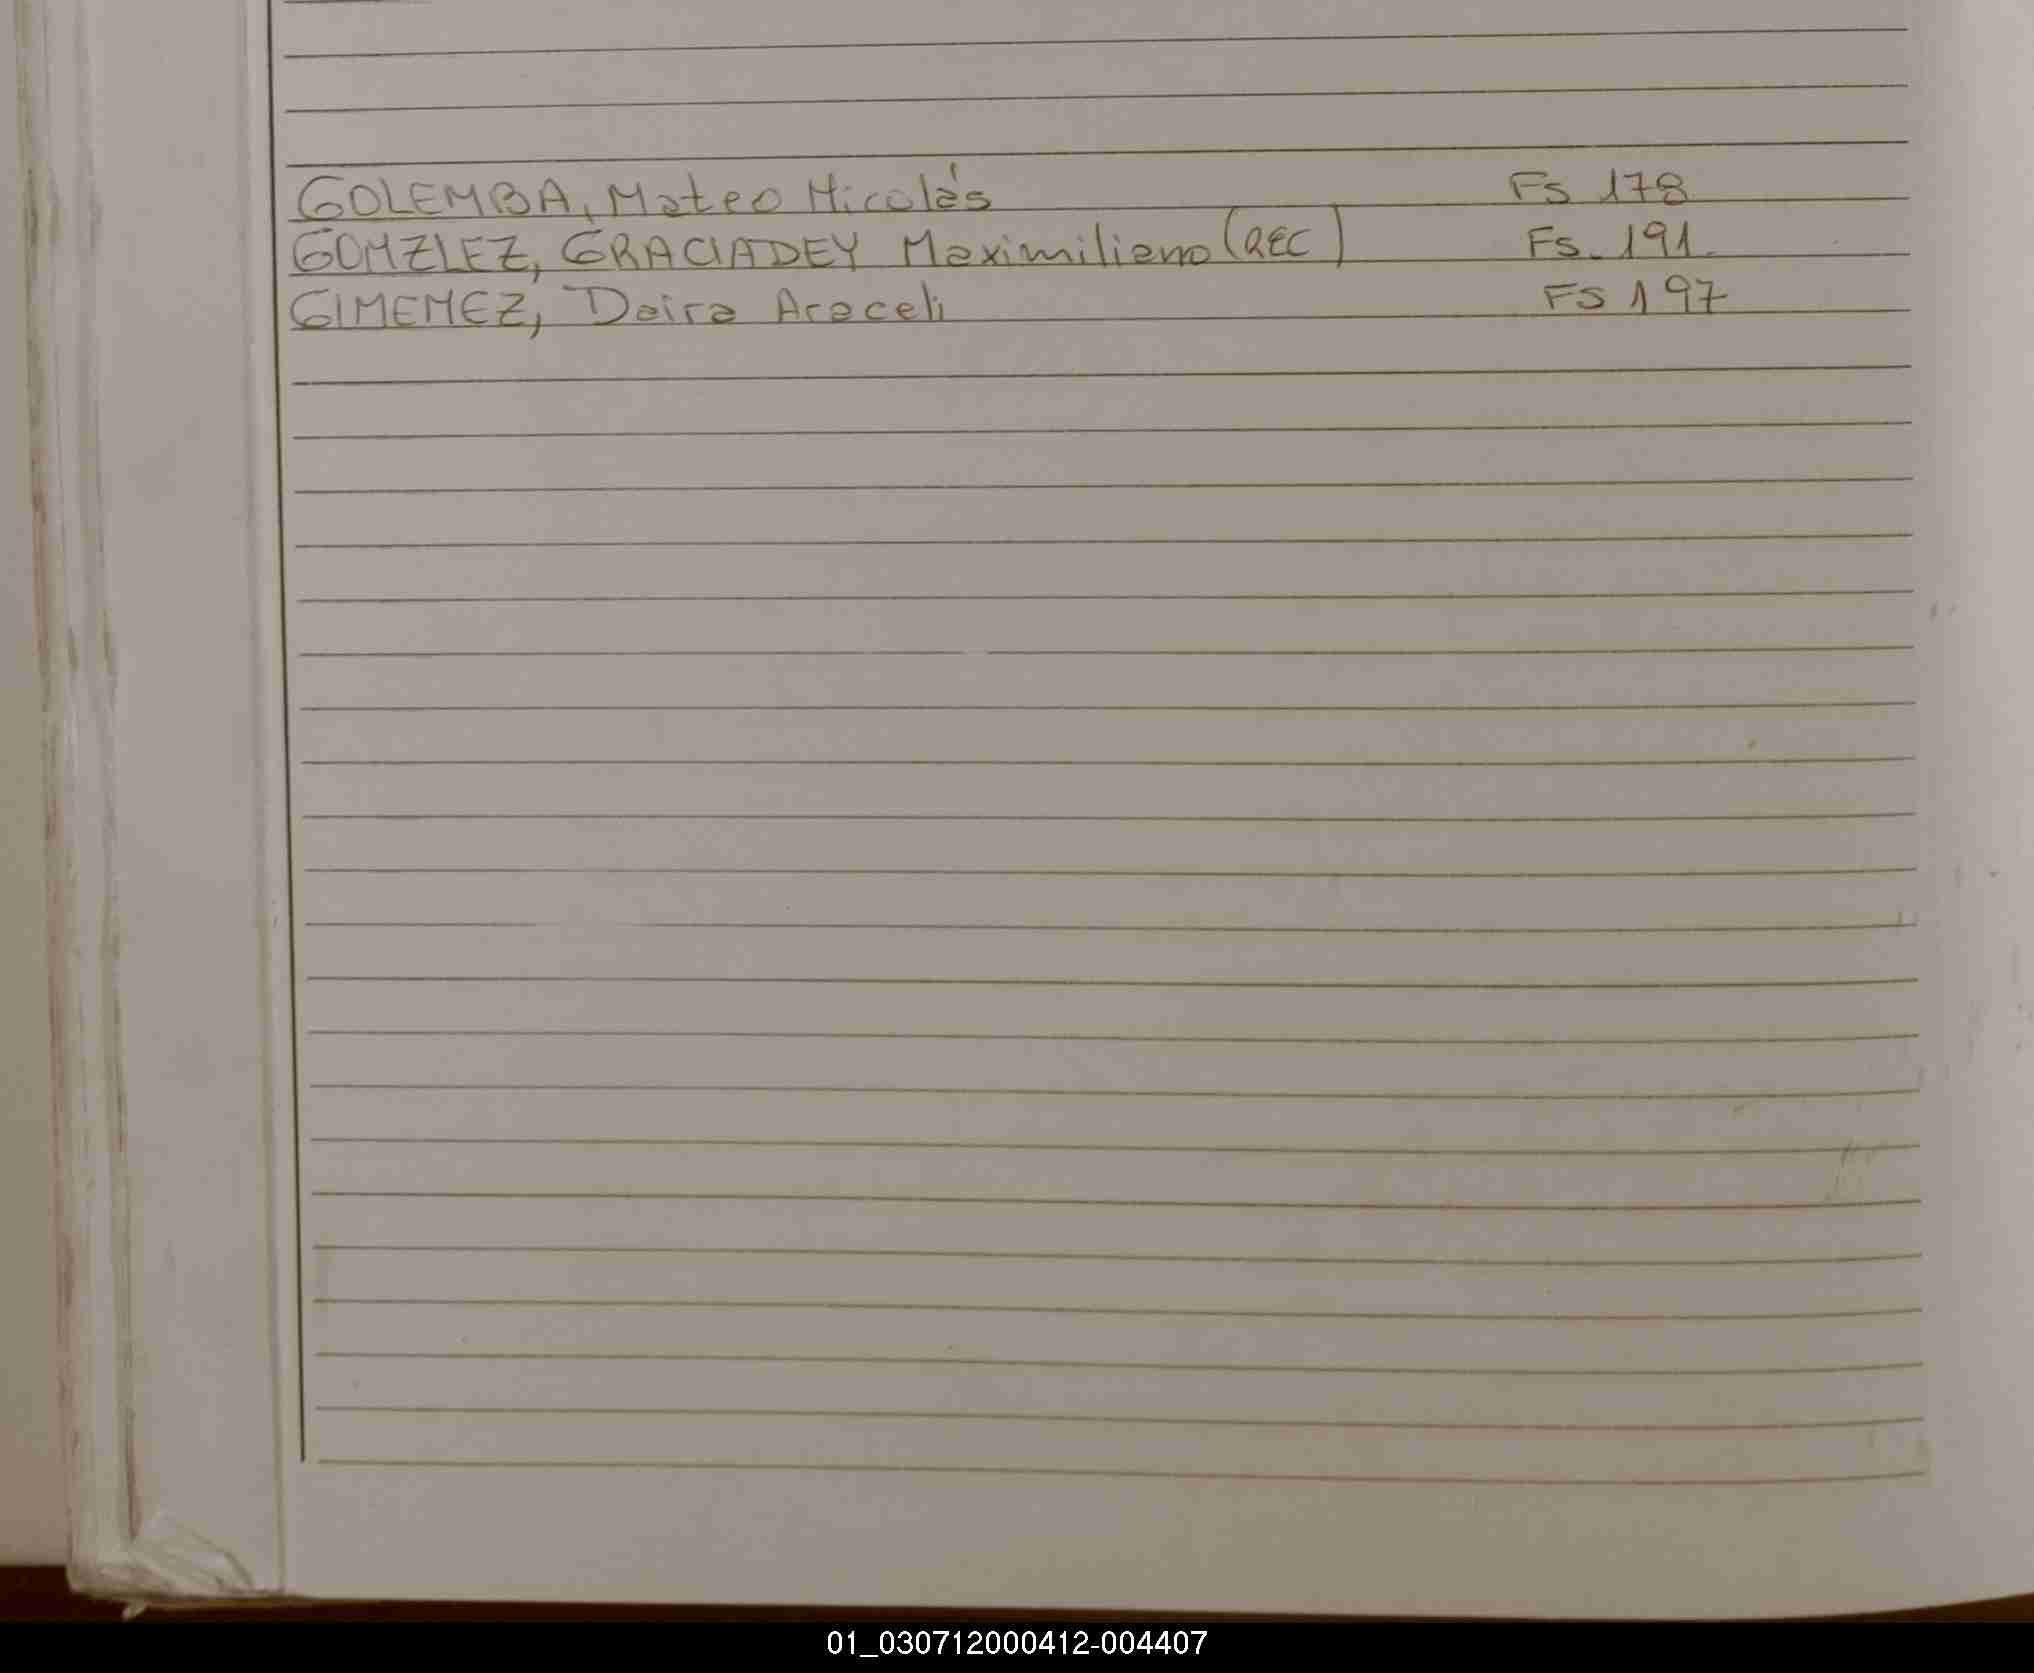 GOLEMBA, Mateo Nicolás Fs 178
GONZLEZ, GRACIADEY Maximiliano (REC) Fs. 191.
GIMENEZ, Daira Araceli FS 197
01_030712000412-004407